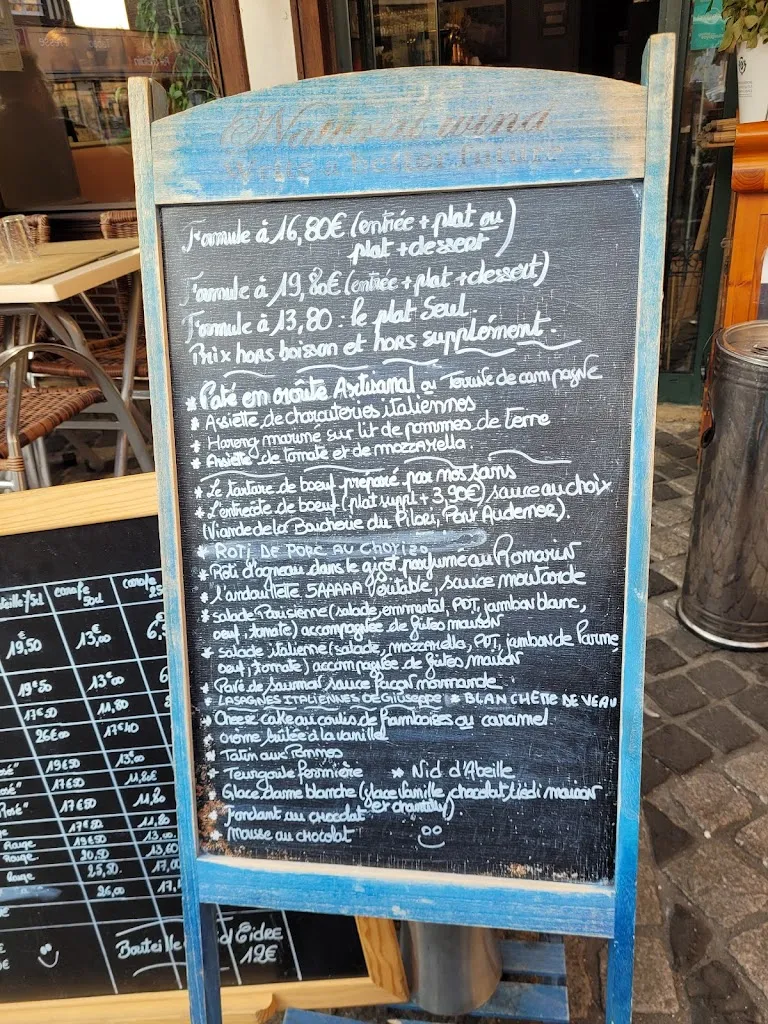 Natural wind
Write a better future
Formule à 16,80€ (entrée + plat ou
plat + dessert)
Formule à 19,80€ (entrée + plat + dessert)
Formule à 13,80 : le plat Seul.
Prix hors boisson et hors supplément.
* Paté en croûte Artisanal ou Terrine de campagne
* Assiette de charcuteries italiennes
* Hareng mariné sur lit de pommes de terre
* Assiette de tomate et de mozzarella.
* Le tartare de boeuf préparé par nos soins
* L'entrecôte de boeuf (plat suppl + 3,90€) sauce au choix
(Viande de la Boucherie du Pilori, Pont Audemer).
* ROTI DE PORC AU CHORIZO
* Roti d'agneau dans le gigot parfumé au Romarin
* L'andouillette 5AAAAA Véritable, sauce moutarde
* salade Parisienne (salade, emmental, PDT, jambon blanc,
oeuf, tomate) accompagnée de frites maison
* salade italienne (salade, mozzarella, PDT, jambon de Parme,
oeuf, tomate) accompagnée de frites maison
* Pavé de saumon sauce façon normande.
* LASAGNES ITALIENNES DE GIUSEPPE * BLANCHETTE DE VEAU
* Cheese cake au coulis de framboises ou caramel
* crème brûlée à la vanille
* Tatin aux Pommes
* Teurgoule fermière * Nid d'Abeille
* Glace dame blanche (glace vanille, chocolat tiedi maison
et chantilly)
* Fondant au chocolat
* Mousse au chocolat
carafe carafe
50cl 25
19,50 13,00
19€50 13€00
17€50 11,80
26€00 17€40
19€50 13€00
17€50 11,80€
17€50 11,80
17€50 11,80
Rouge 19€50 13,00
Rouge 20,50 13,60
Rouge 25,50 17,00
26,00
Bouteille Cidre
12€